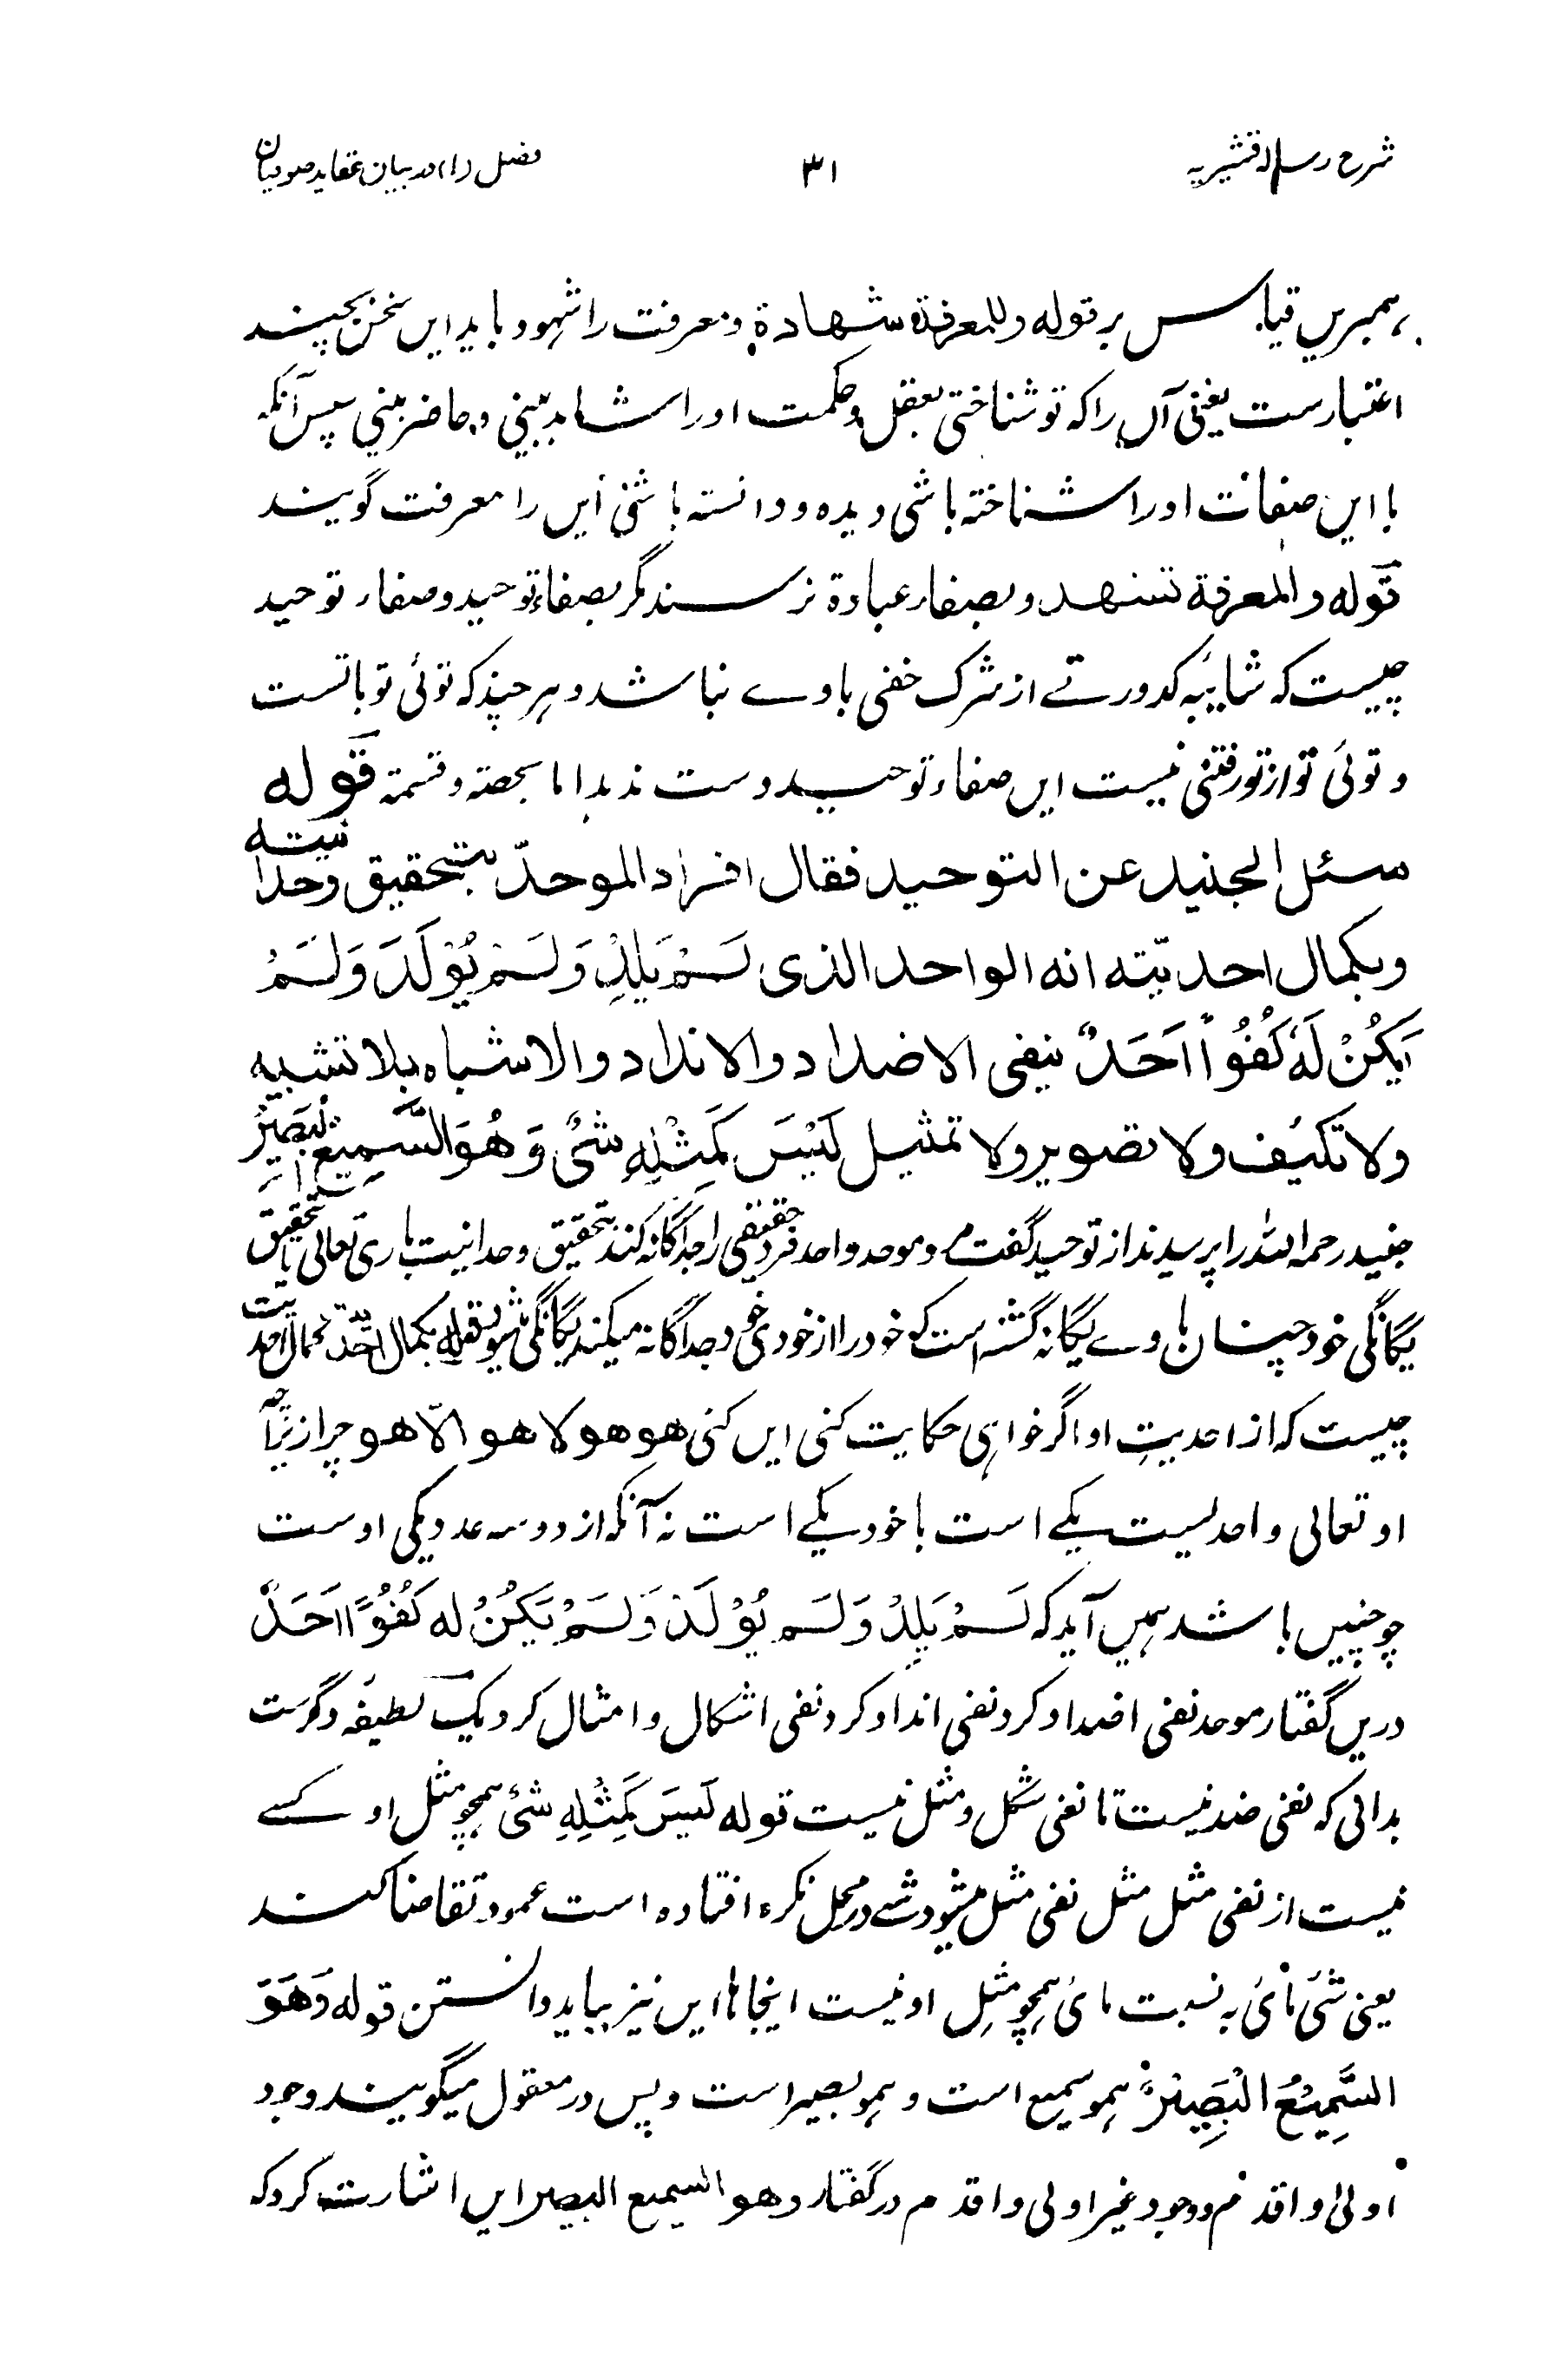 شرح رسالہ قشیریہ
۳۱
فصل (۱) در بیان عقاید صوفیان
ہمبریں قیاس بر قوله وللمعرفة شهادة و معرفت را شہود باید ایں سخن بچند
اعتبارست یعنی آں را کہ تو شناختی بعقل و حکمت او را شاہد بینی و حاضر بینی سپس آنکہ
با ایں صفات او را شناختہ باشی دیدہ و دانستہ باشی ایں را معرفت گویند
قوله والمعرفة تشهد و بصفاء عبادة نرسند مگر بصفاء توحید و صفاء توحید
چیست کہ شایبہ کدورتے از شرک خفی با وے نباشد و ہر چند کہ توئی تو با تست
و توئی تو از تو رفتنی نیست ایں صفاء توحید دست ندہد اما بحصته و قسمته قوله
سئل الجنید عن التوحید فقال افراد الموحّد بتحقیق وحدانیته
وبکمال احدیّته انه الواحد الذی لَمْ یَلِدْ وَلَمْ یُوْلَدْ وَلَمْ
یَکُنْ لَهٗ کُفُوًا اَحَدٌ بنفی الاضداد والانداد والاشباه بلا تشبیه
ولا تکییف ولا تصویر ولا تمثیل لَیْسَ کَمِثْلِهِ شَیْءٌ وَهُوَ السَّمِیْعُ الْبَصِیْرُ
جنید رحمہ اللہ را پرسیدند از توحید گفت موحد واحد فرد حقیقی را جداگانہ کند بتحقیق وحدانیت باری تعالی یا تحقیق
یگانگی خود چنان با وے یگانہ گشتہ است کہ خود را از خودی خود جداگانہ میکند یگانگی میشود قوله بکمال احدیّته کمال احدیت
چیست کہ از احدیت او اگر خواہی حکایت کنی ایں کنی هو هو لا هو الّا هو چرا زیراچہ
او تعالی واحد لیست یکے است با خود یکے است نہ آنکہ از دو سہ عدد یکی اوست
چو چنیں باشد ہمیں آید کہ لَمْ یَلِدْ وَلَم یُوْلَدْ وَلَمْ یَکُنْ له کُفُوًا اَحَدٌ
دریں گفتار موحد نفی اضداد کرد نفی انداد کرد نفی اشکال و امثال کرد یک لطیفہ دگرست
بدانی کہ نفی ضد نیست تا نفی شکل و مثل نیست قوله لَیْسَ کَمِثْلِهِ شیْءٌ ہمچو مثل او کسے
نیست از نفی مثل مثل نفی مثل میشود شے در محل نکرہ افتادہ است عموم تقاضا کند
یعنی شیٔ مائ بہ نسبت مائ ہمچو مثل او نیست اینجا ہا ایں نیز بباید دانستن قوله وَهُوَ
السَّمِیْعُ الْبَصِیْرُ ہمو سمیع است و ہمو بصیر است و پس در معقول میگویند وجود
اولی و اقدم و وجود غیر اولی و اقدم در گفتار وهو السمیع البصیر ایں اشارت کرد کہ